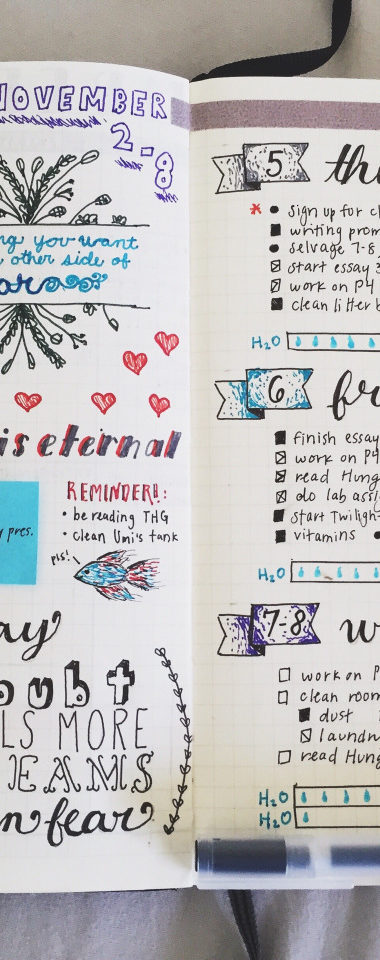 NOVEMBER
2-8
you want
other side of
is eternal
pres.
REMINDER!!:
• be reading THG
• clean Umi's tank
pls!
LS MORE
fear
5
* • sign up for
writing
• selvage 7-8
start essay
work on P4
clean litter
H₂O
6
finish essay
work on P4
read Hung
do lab
start Twilight
vitamins •
H₂O
7-8
work on P
clean room
dust
laundr
read Hung
H₂O
H₂O